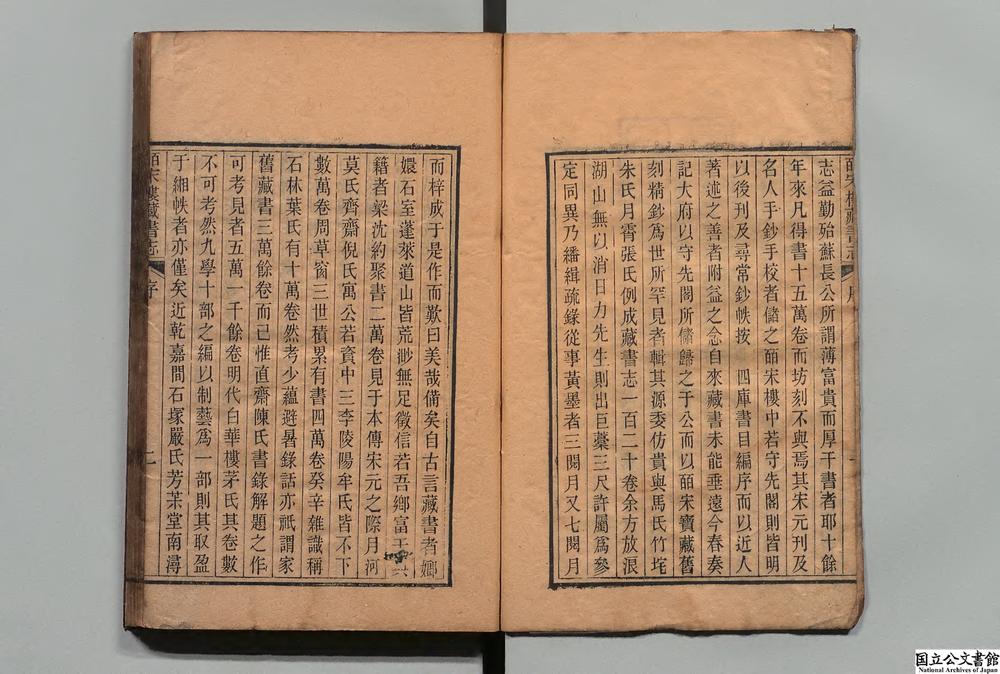 志益勤殆蘇長公所謂薄富貴而厚于書者耶十餘
年來凡得書十五萬卷而坊刻不與焉其宋元刊及
名人手鈔手校者儲之皕宋樓中若守先閣則皆明
以後刊及尋常鈔帙按 四庫書目編序而以近人
著述之善者附益之念自來藏書未能垂遠今春奏
記大府以守先閣所儲歸之于公而以皕宋寶藏舊
刻精鈔爲世所罕見者輯其源委仿貴與馬氏竹垞
朱氏月霄張氏例成藏書志一百二十卷余方放浪
湖山無以消日力先生則出巨藁三尺許屬爲參
定同異乃繙緝疏錄從事黃墨者三閱月又七閱月
皕宋樓藏書志
序
而梓成于是作而歎曰美哉備矣自古言藏書者嫏
嬛石室蓬萊道山皆荒渺無足徵信若吾鄉富于
籍者梁沈約聚書二萬卷見于本傳宋元之際月河
莫氏齊齋倪氏寓公若資中三李陵陽牟氏皆不下
數萬卷周草窗三世積累有書四萬卷癸辛雜識稱
石林葉氏有十萬卷然考少蘊避暑錄話亦祇謂家
舊藏書三萬餘卷而已惟直齋陳氏書錄解題之作
可考見者五萬一千餘卷明代白華樓茅氏其卷數
不可考然九學十部之編以制藝爲一部則其取盈
于緗帙者亦僅矣近乾嘉間石塚嚴氏芳茮堂南潯
皕宋樓藏書志
序
二
国立公文書館
National Archives of Japan